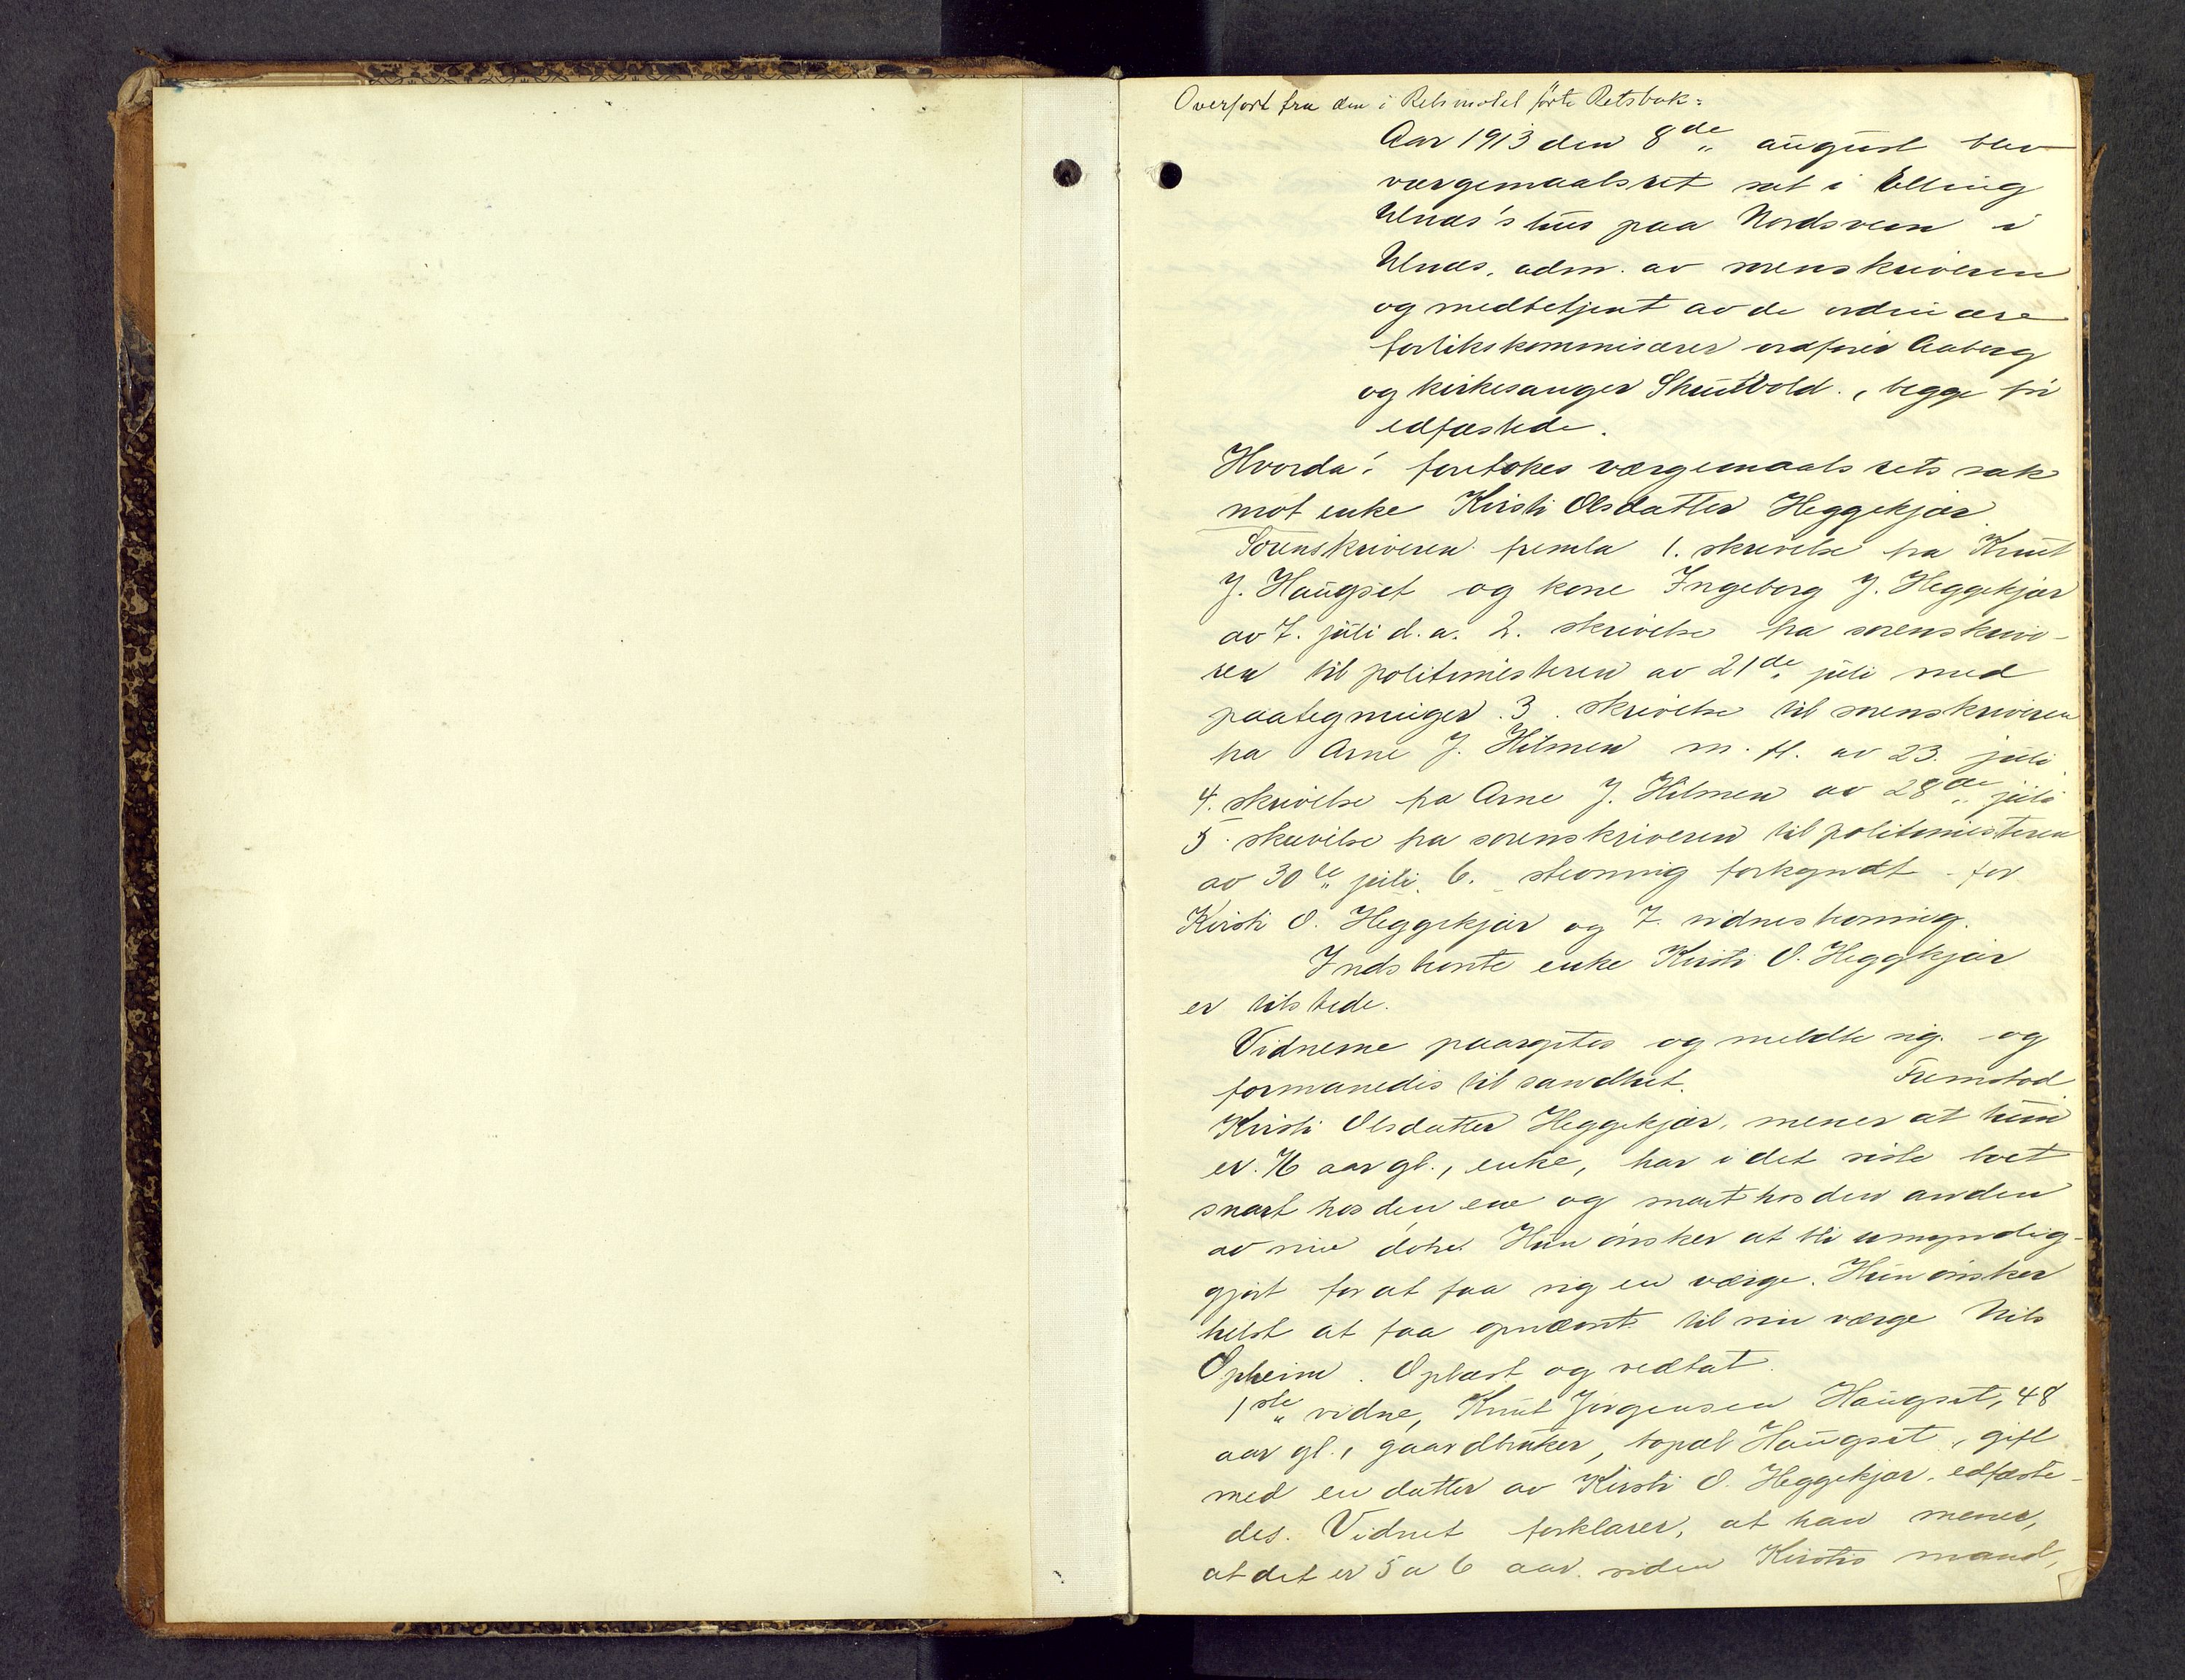 Overført fra den i Retsmøtet førte Retsbok:
Aar 1913 den 8de august blev
værgemaalsret sat i Elling
Ulnæs's hus paa Nordsveen i
Ulnæs, adm. av sorenskriveren
og medbetjent av de ordinære
forlikskommisærer ordfører Aaberg
og kirkesanger Skutvold, begge før
edfæstede.
Hvorda: foretokes værgemaalsrets sak
mot enke Kirsti Olsdatter Heggekjær
Sorenskriveren fremla 1. skrivelse fra Knut
J. Haugset og kone Ingeborg J. Heggekjær
av 7. juli d.a. 2. skrivelse fra sorenskrive-
ren til politimesteren av 21de juli med
paategninger. 3. skrivelse til sorenskriveren
fra Arne J. Hilmen m. fl. av 23. juli
4. skrivelse fra Arne J. Hilmen av 28de juli
5. skrivelse fra sorenskriveren til politimesteren
av 30te juli. 6. stevning forkyndt for
Kirsti O. Heggekjær og 7. vidnestevning.
Indstevnte enke Kirsti O. Heggekjær
er tilstede.
Vidnerne paaroptes og meldte sig og
formanedes til sandhet. Fremstod
Kirsti Olsdatter Heggekjær, mener at hun
er 76 aar gl., enke, har i det siste boet
snart hos den ene og snart hos den anden
av sine døtre. Hun ønsker at bli umyndig-
gjort for at faa sig en værge. Hun ønsker
helst at faa opnævnt til sin værge Nils
Opheim. Oplæst og vedtat.
1ste vidne, Knut Jørgensen Haugset, 48
aar gl., gaardbruker, bopæl Haugset, gift
med en datter av Kirsti O. Heggekjær, edfæste-
des. Vidnet forklarer, at han mener,
at det er 5 a 6 aar siden Kirstis mand,